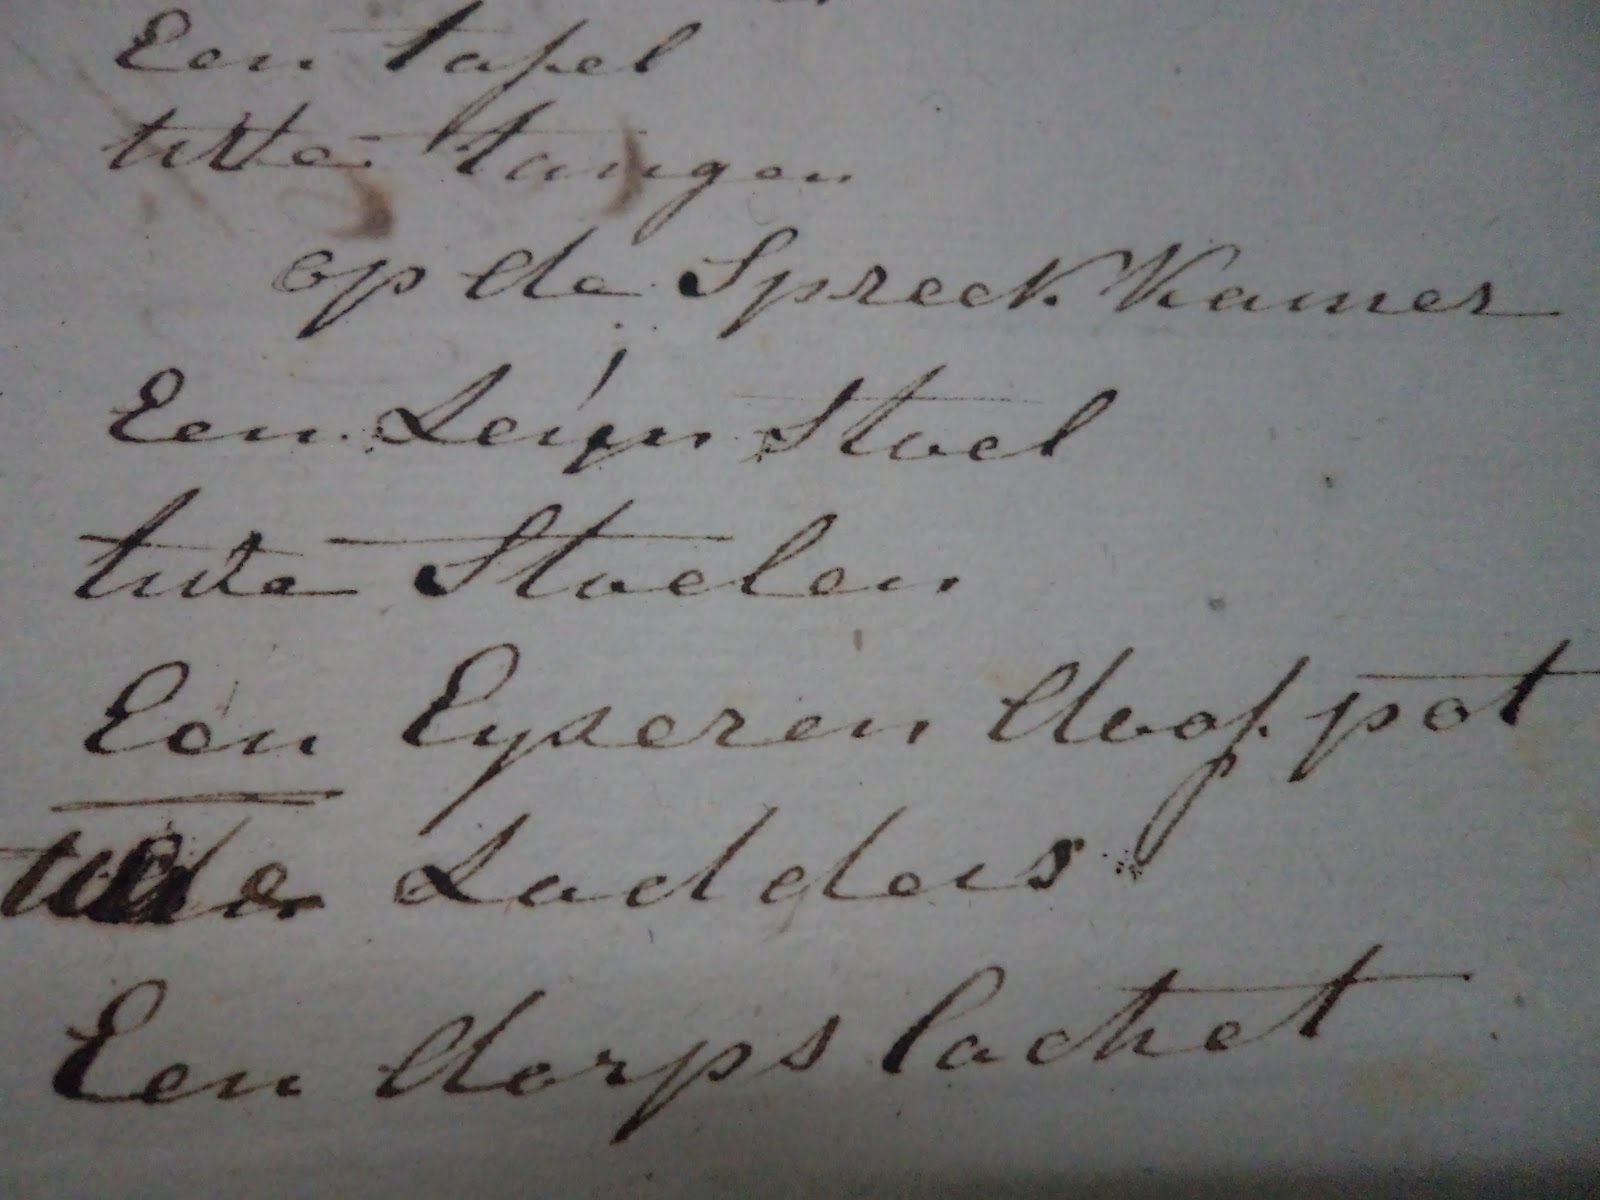 Een tafel
twe tangen
op de Spreek Kamer
Een Leijn Stoel
twe Stoelen
Een Eyseren doofpot
twe Ladders
Een dorps Cachet